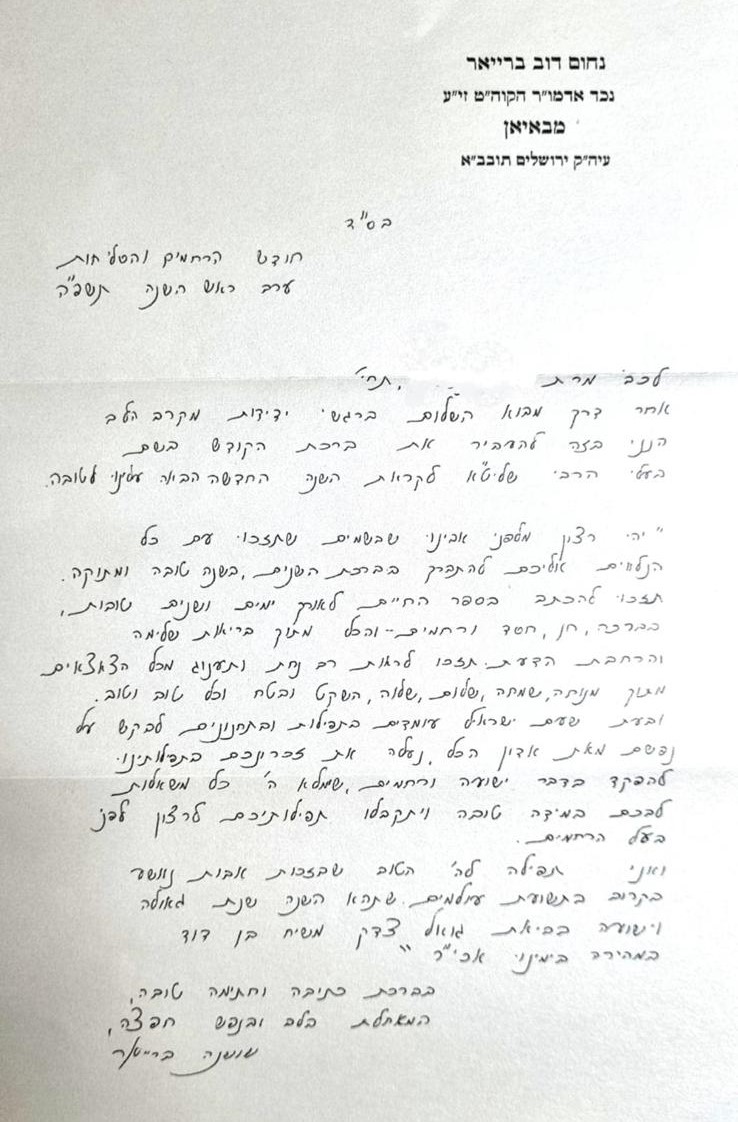 נחום דוב ברייאר
נכד אדמו״ר הקוה״ט זי״ע
מבאיאן
עיה״ק ירושלים תובב״א
בס"ד
חודש הרחמים והסליחות
ערב ראש השנה תשפ"ה
לכב' מרת , תחי'
אחר דרך מבוא השלום ברגשי ידידות מקרב הלב
הנני בזה להעביר את ברכת הקודש בשם
בעלי הרבי שליט"א לקראת השנה החדשה הבאה עלינו לטובה.
"יהי רצון מלפני אבינו שבשמים שתזכו עם כל
הנלוים אליכם להתברך בברכת השנים, בשנה טובה ומתוקה.
תזכו להכתב בספר החיים לאורך ימים ושנים טובות,
בברכה, חן, חסד ורחמים - והכל מתוך בריאות שלימה
והרחבת הדעת. תזכו לראות רב נחת ותענוג מכל הצאצאים
מתוך מנוחה, שמחה, שלום, שלוה, השקט ובטח וכל טוב וטוב.
ובעת שעם ישראל עומדים בתפילות ובתחנונים לבקש על
נפשם מאת אדון הכל, נעלה את זכרונכם בתפילותינו
להפקד בדבר ישועה ורחמים, שימלא ה' כל משאלות
לבכם במידה טובה ויתקבלו תפילותיכם לרצון לפני
בעל הרחמים.
ואני תפילה לה' הטוב שבזכות אבות נוושע
בקרוב בתשועת עולמים. שתהא השנה שנת גאולה
וישועה בביאת גואל צדק משיח בן דוד
במהירה בימינו אכי"ר"
בברכת כתיבה וחתימה טובה,
המאחלת בלב ובנפש חפצה,
שושנה ברייאר